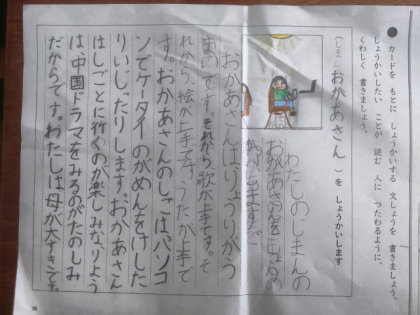 ●カードを もとに しょうかいする 文しょうを 書きましょう。
しょうかいしたい ことが 読む 人に つたわるように、
くわしく 書きましょう。
(じまんの おかあさん)を しょうかいします
わたしのじまんの
おかあさんをしょうか
いします。
おかあさんはりょうりがう
まいです。それから歌が上手です。そ
れから絵が上手です。うたが上手で
す。おかあさんのしごとはパソコ
ンでケータイのがめんをけした
りいじったりします。おかあさん
はしごとに行くのが楽しみなりよう
は、中国ドラマをみるのがたのしみ
だからです。わたしは母が大すきです。